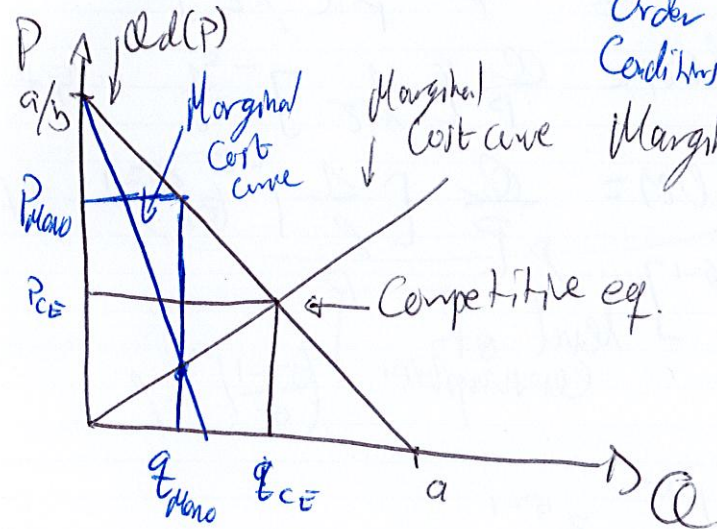 P
Qd(P)
a/b
Marginal
Cost
curve
Marginal
Cost curve
Order
Conditions
Margin
P Mono
P CE
Competitive eq.
q Mono
q CE
a
Q